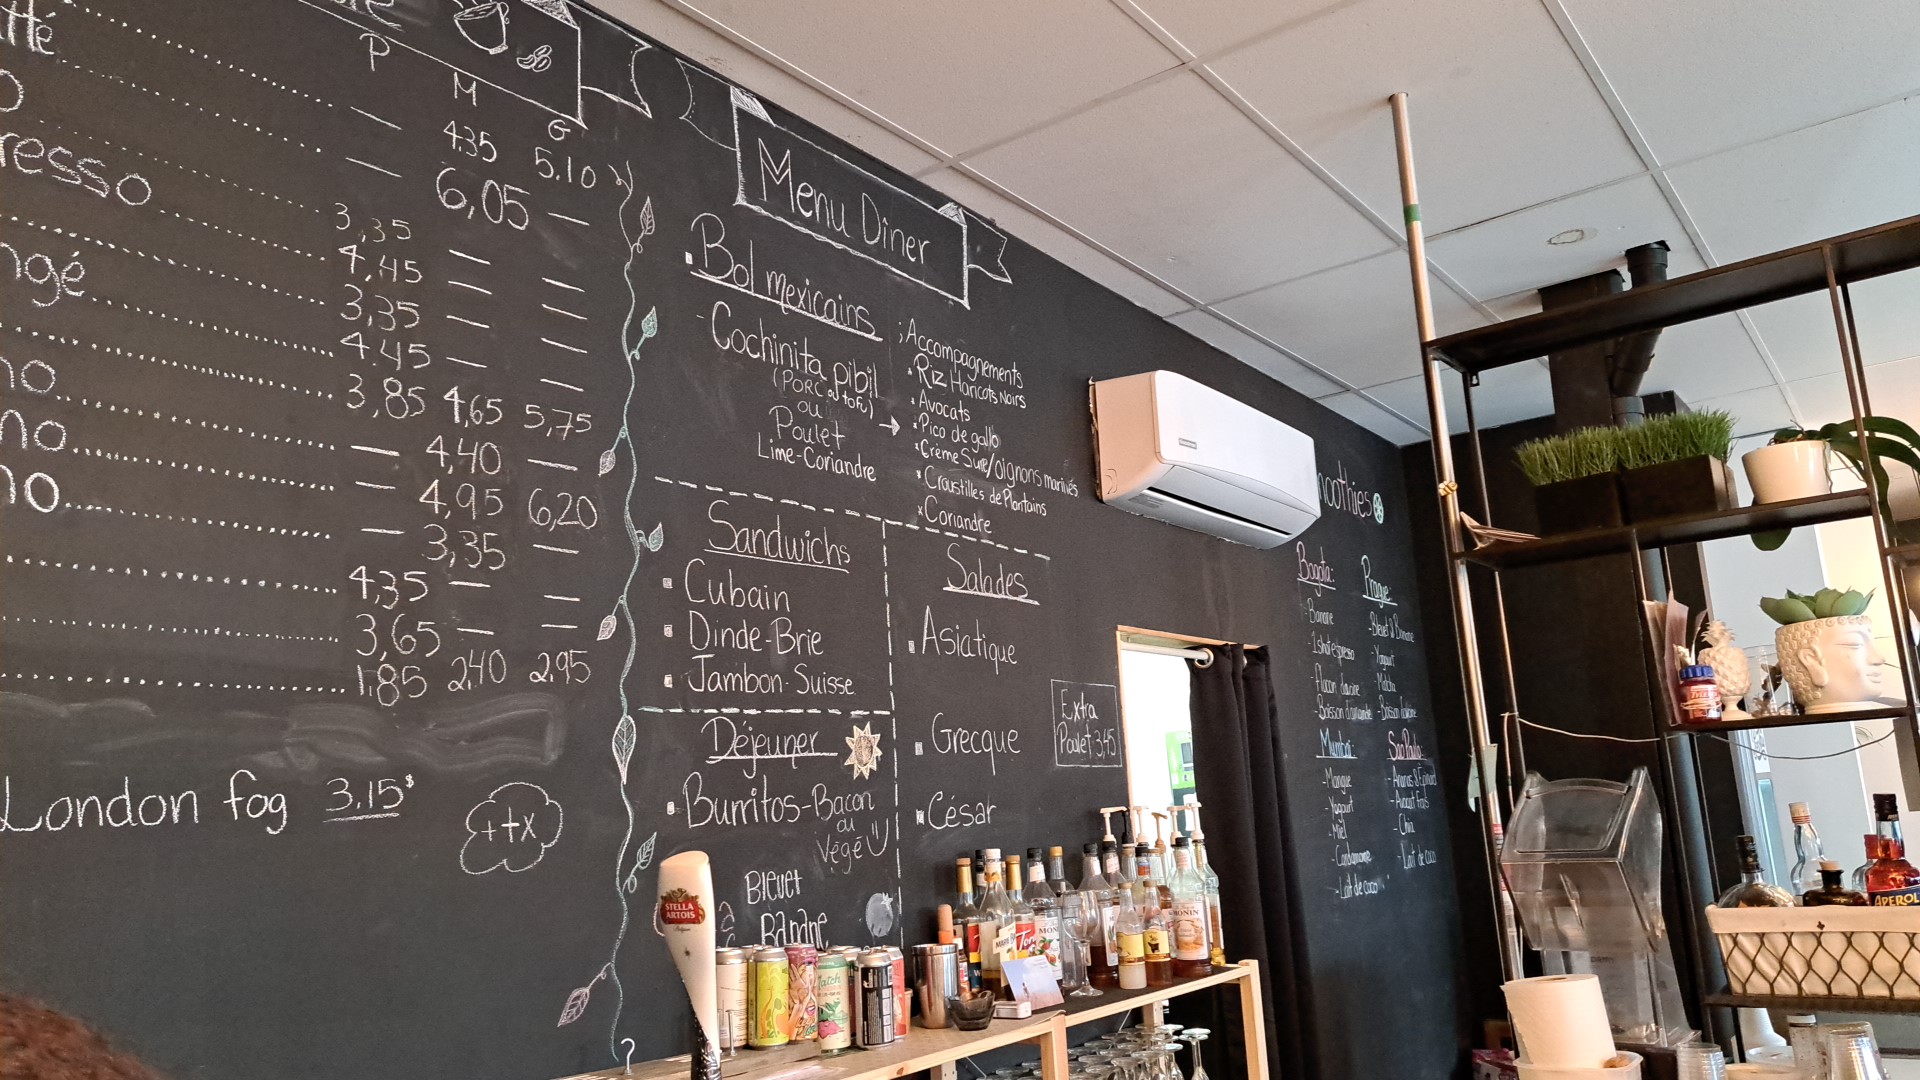 P M G
4.35 5.10
6,05 —
resso 3,35 — —
4,45 — —
ngé 3,35 — —
4.45 — —
3,85 4,65 5,75
no — 4,40 —
no — 4,95 6,20
no — 3,35 —
4,35 — —
3,65 — —
1.85 2,40 2,95
London fog 3.15$
++x
Menu Diner
Bol mexicains
- Cochinita pibil
(Porc ou tofu)
ou
Poulet
Lime-Coriandre
Accompagnements
Riz Haricots Noirs
Avocats
Pico de gallo
Crème Sure/oignons marinés
Croustilles de Plantains
Coriandre
Sandwichs
Cubain
Dinde-Brie
Jambon-Suisse
Déjeuner
Burritos-Bacon
ou
Végé
Bleuet
Banane
Salades
Asiatique
Grecque
César
Extra
Poulet 3,45
oothies
Bogota:
- Banane
- 1 shot espresso
- Flocon d'avoine
- Boisson d'amande
Prague:
- Bleuet & Banane
- Yogourt
- Matcha
Mumbai:
- Mangue
- Yogourt
- Miel
- Cardamome
- Lait de coco
Sao Paulo:
- Ananas & Épinard
- Avocat frais
- Chia
- Lait de coco
STELLA
ARTOIS
MONIN
APEROL